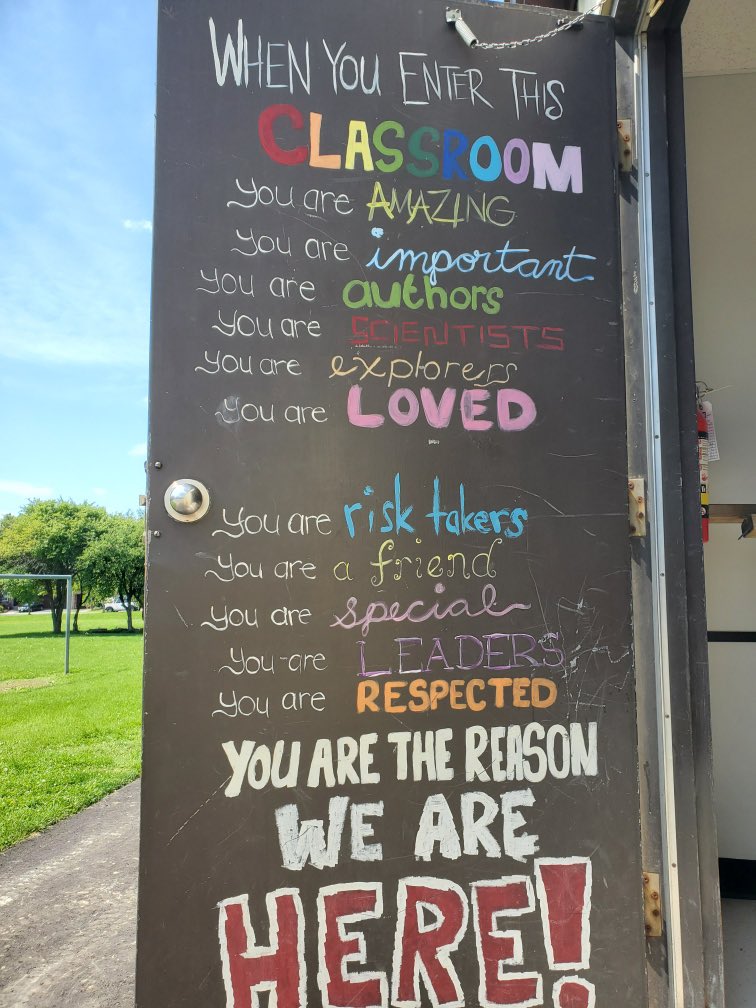 WHEN YOU ENTER THIS
CLASSROOM
You are AMAZING
You are important
you are authors
You are SCIENTISTS
you are explorers
you are LOVED
you are risk takers
You are a friend
you are special
You are LEADERS
you are RESPECTED
YOU ARE THE REASON
WE ARE
HERE!